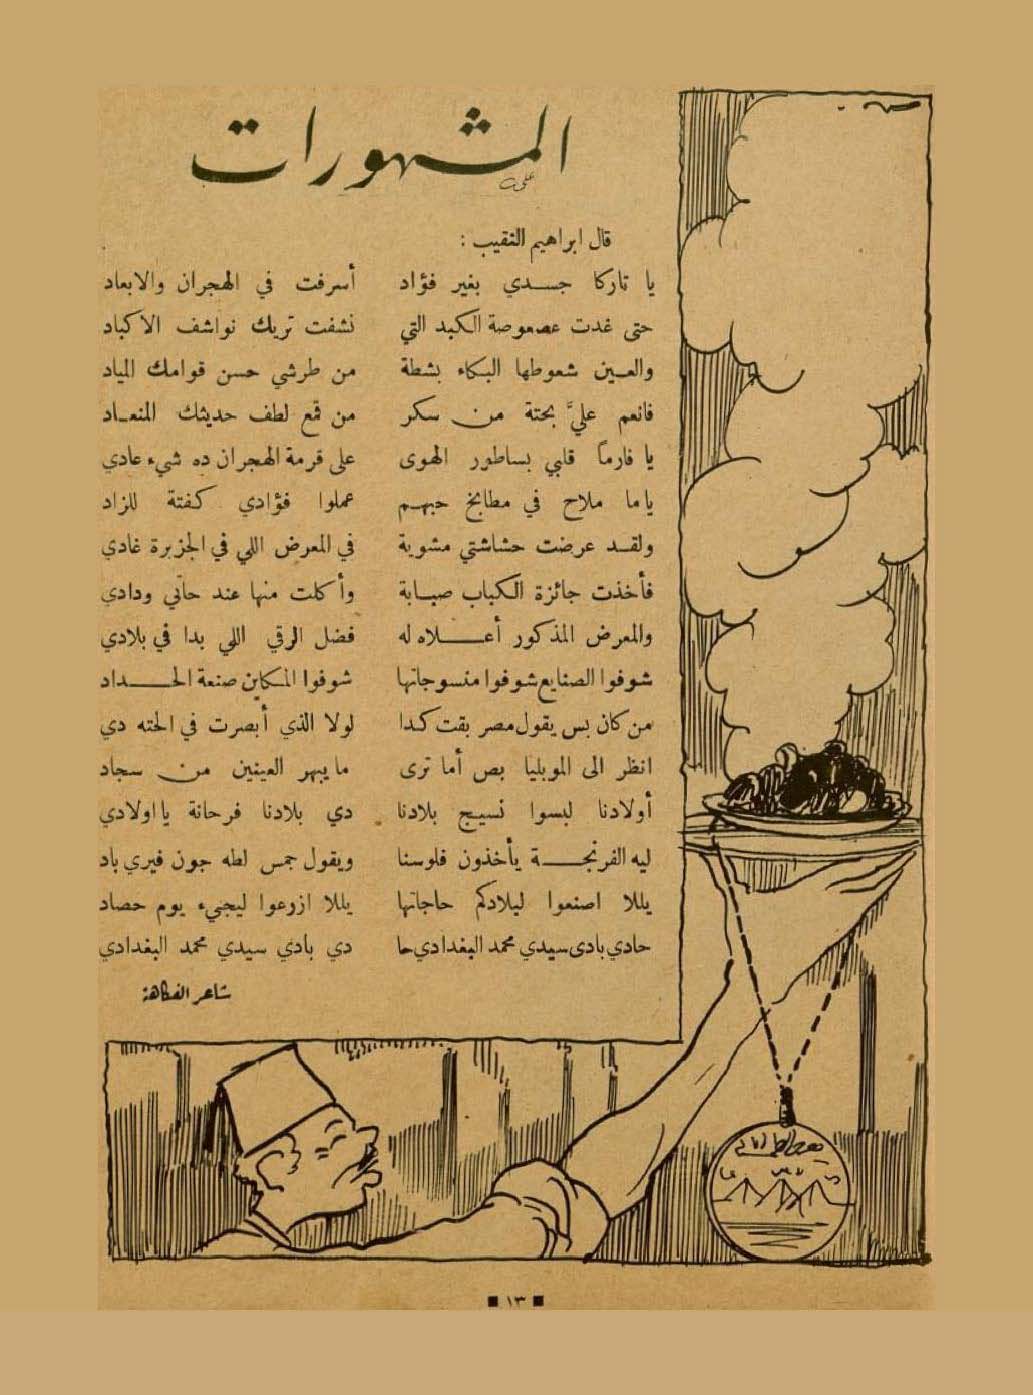 المشهورات
قال ابراهيم النقيب :
يا تاركا جسدي بغير فؤاد أسرفت في الهجران والابعاد
حتى غدت عصعوصة الكبد التي نشفت تريك نواشف الاكباد
والعين شعوطها البكاء بشطة من طرشي حسن قوامك المياد
فانعم عليَّ بحتة من سكر من قمع لطف حديثك المنعاد
يا فارماً قلبي بساطور الهوى على قرمة الهجران ده شيء عادي
ياما ملاح في مطابخ حبهم عملوا فؤادي كفتة للزاد
ولقد عرضت حشاشتي مشوية في المعرض اللي في الجزيرة غادي
فأخذت جائزة الكباب صبابة وأكلت منها عند حاتي ودادي
والمعرض المذكور أعلاه له فضل الرقي اللي بدا في بلادي
شوفوا الصنايع شوفوا منسوجاتها شوفوا المكاين صنعة الحداد
من كان بس يقول مصر بقت كدا لولا الذي أبصرت في الحته دي
انظر الى الموبليا بص أما ترى ما يبهر العينين من سجاد
أولادنا لبسوا نسيج بلادنا دي بلادنا فرحانة يا اولادي
ليه الفرنجة يأخذون فلوسنا ويقول جمس لطه جون فيري باد
يللا اصنعوا لبلادكم حاجاتها يللا ازرعوا ليجيء يوم حصاد
حادي بادى سيدي محمد البغدادي حا دي بادي سيدي محمد البغدادي
شاعر الفكاهة
١٣